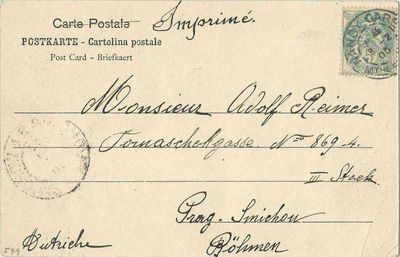 Carte Postale
Imprimé.
POSTKARTE - Cartolina postale
Post Card - Briefkaert
NANCY GARE
Monsieur Adolf Reimer
Tomaschekgasse No 869-4.
III Stock
Prag-Smichou
Autriche
Böhmen
549